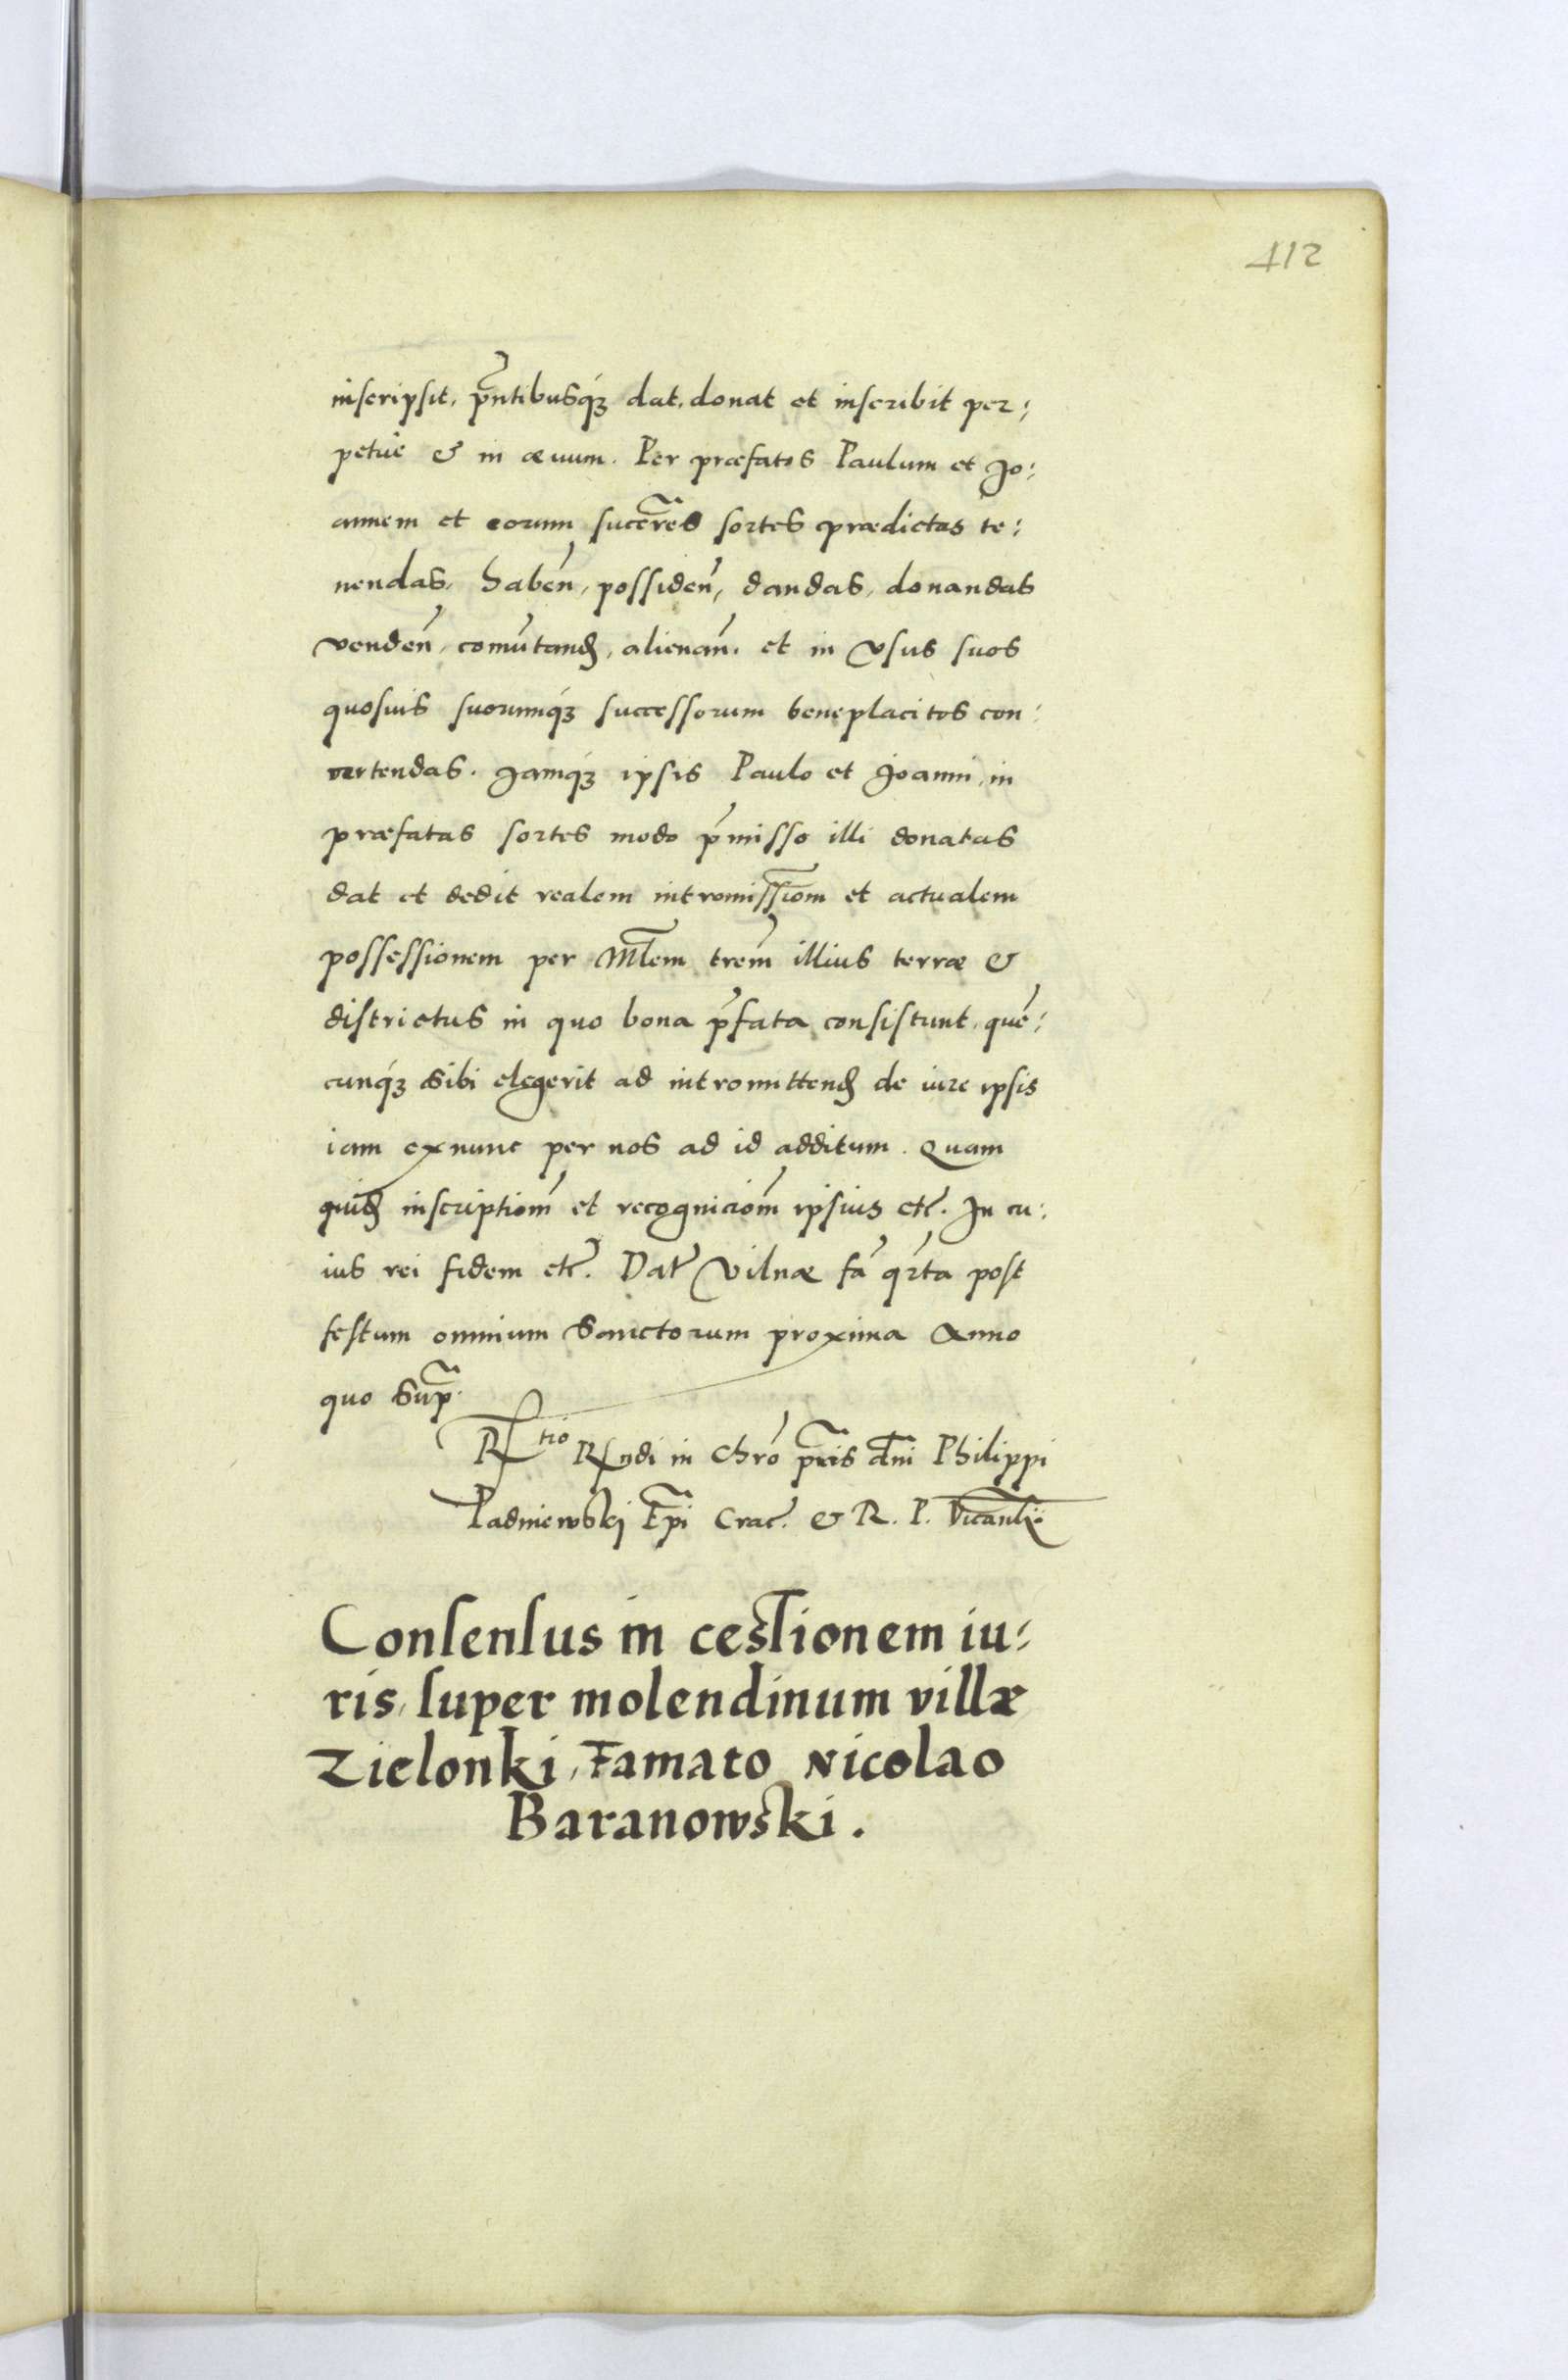 412
inscripsit, pr̃ntibusq́ꝫ dat, donat et inscribit per:
petuè & in æuum. Per præfatos Paulum et Jo:
annem et eorum succeres̃ sortes prædictas te:
nendas, haben̄, possiden̄, dandas, donandas
venden̄, com̄utand̨, alienan̄. et in vsus suos
quosuis suorumq́ꝫ successorum beneplacitos con:
vertendas. Jamq́ꝫ ipsis Paulo et Joanni, in
præfatas sortes modo p̄misso illi donatas
dat et dedit realem intromissiom̄ et actualem
possessionem per Mlem̃ trem̄ illius terræ &
districtus in quo bona p̄fata consistunt, quē:
cunq́ꝫ sibi elegerit ad intromittend̨ de iure ipsis
iam exnunc per nos ad id additum. Quam
quid̨ inscriptiom̄ et recogniciom̄ ipsius etc̃. In cu:
ius rei fidem etc̃. Dat̃ Vilnæ fā qr̄ta post
festum omnium Sanctorum proxima Anno
quo Sup̃.
R<sup>tio</sup> R̃ndi in Chrō pr̃is dñi Philippi
Padniewskj Ep̃i Crac̃. & R. P. Vicanlr̃
Consensus in cessionem iu:
ris, super molendinum villæ
Zielonki, Famato Nicolao
Baranowski.